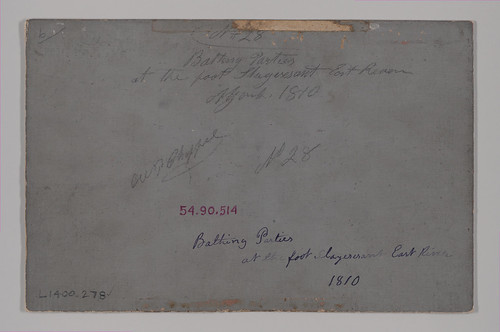 No 28
Bathing Parties
at the foot Stuyvesant East River
N York. 1810
W P Chappel
No 28
54.90.514
Bathing Parties
at the foot Stuyvesant East River
1810
L1400.278